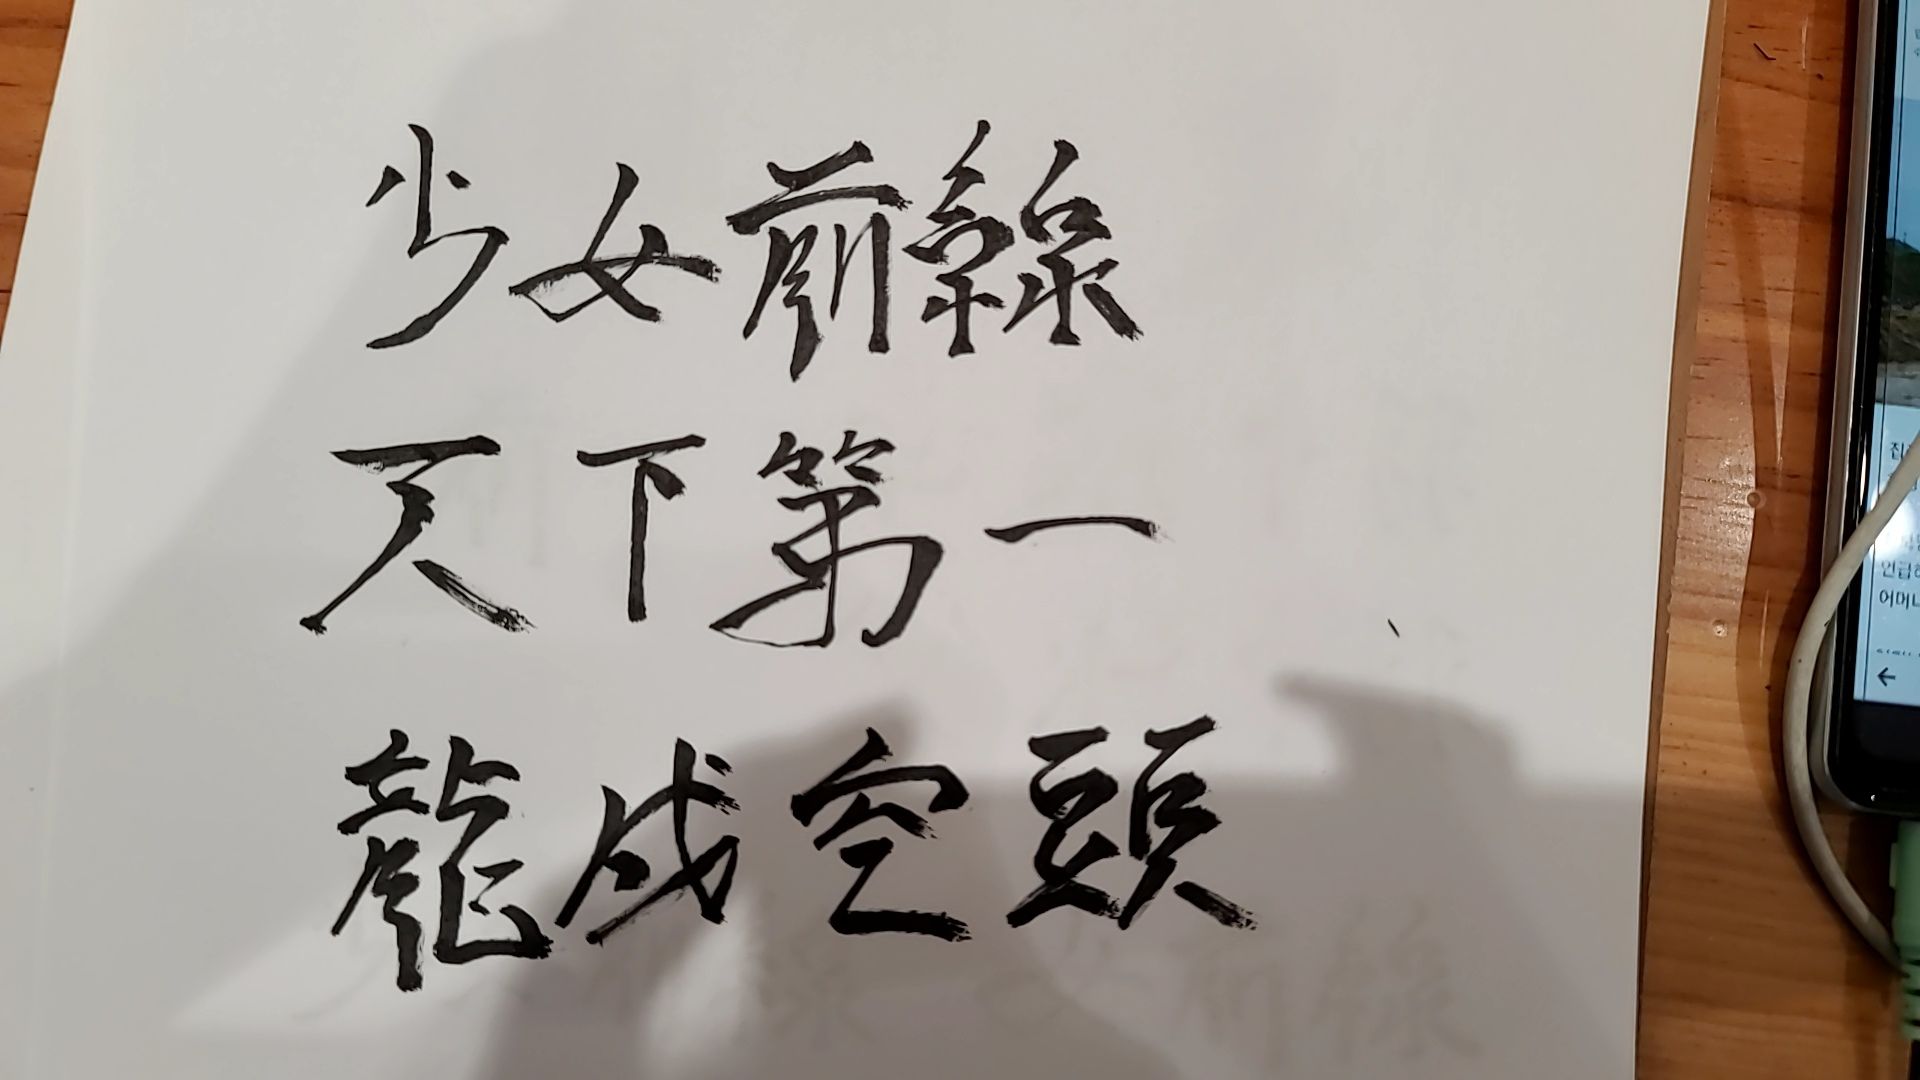 少女前線
天下第一
龍成空頭
언급하
어머니